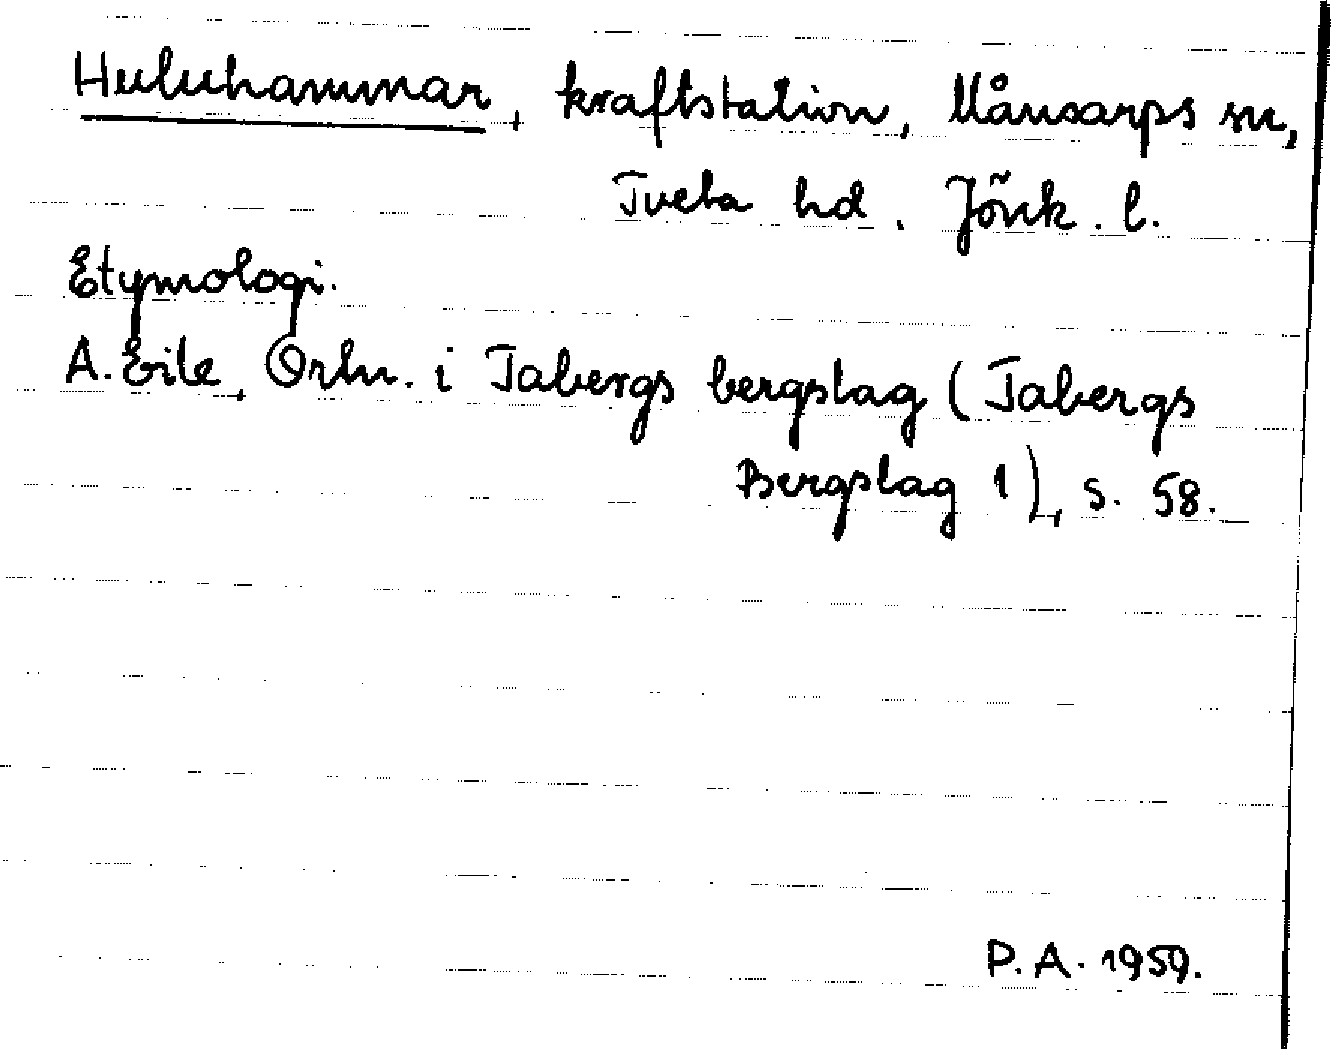 Huluhammar, kraftstation, Månsarps sn,
Tveta hd. Jönk. l.
Etymologi.
A. Ejte, Ortn. i Tabergs bergslag (Tabergs
Bergslag 1), s. 58.
P. A. 1959.